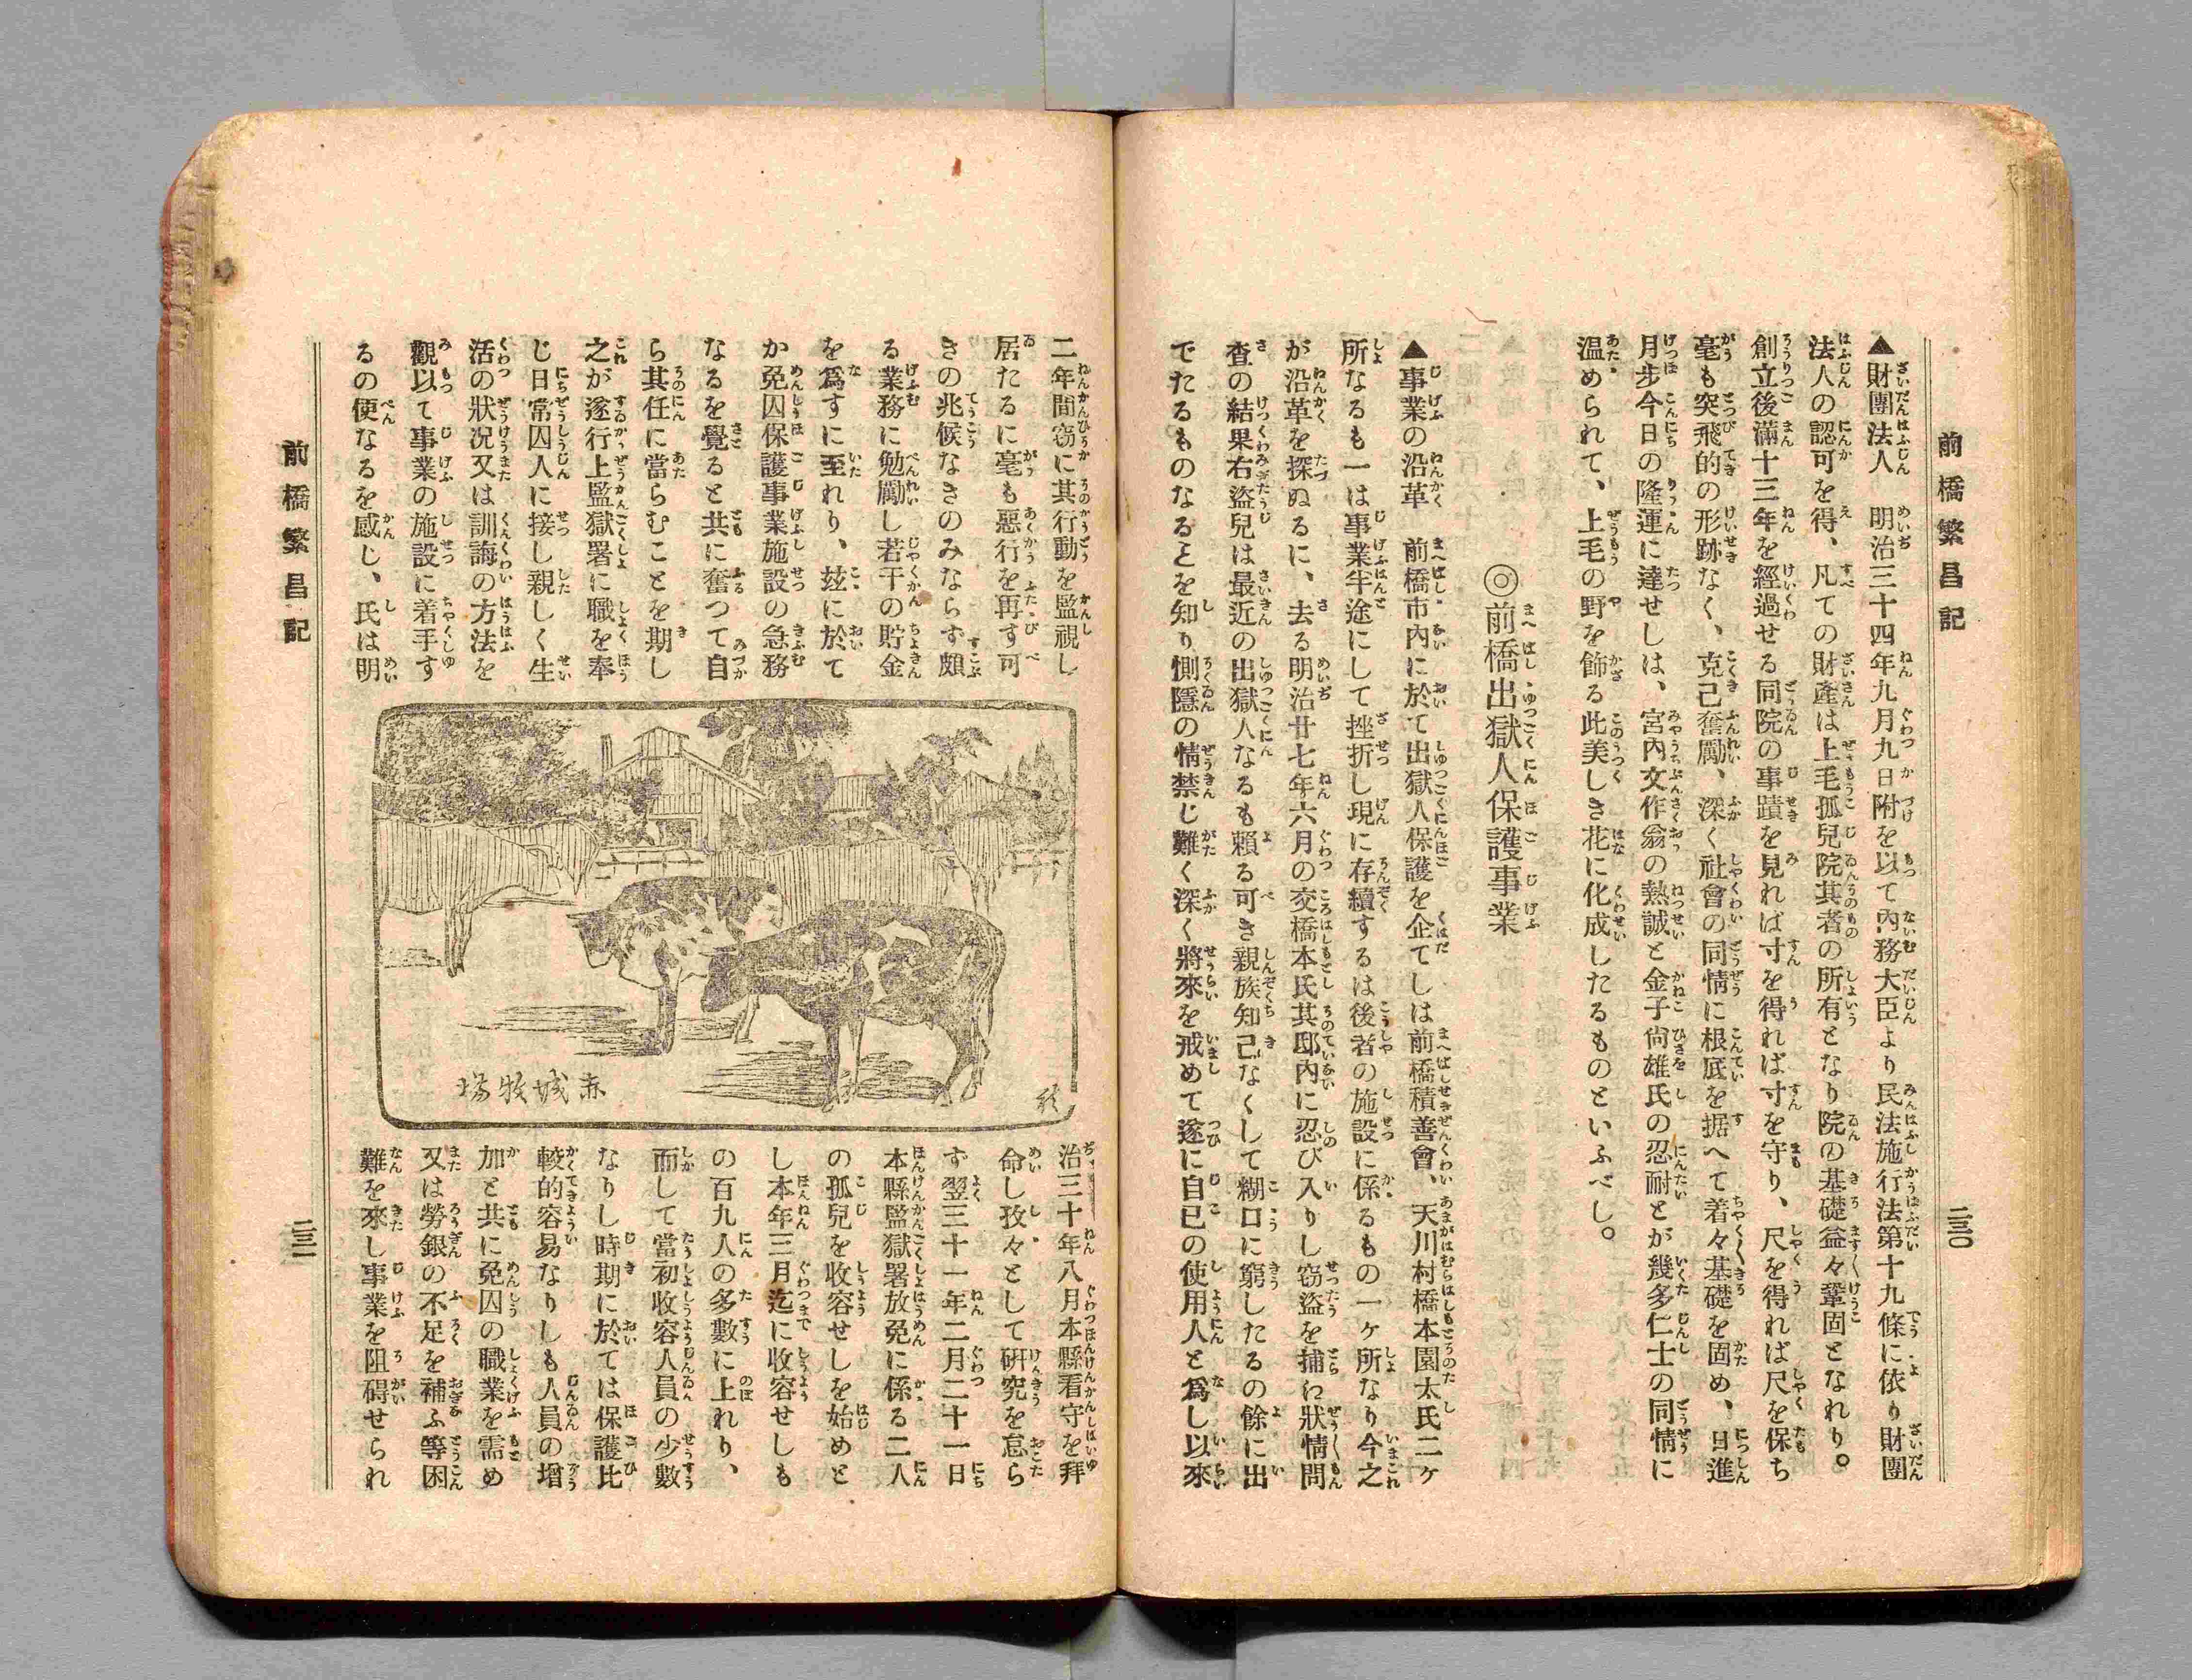 前橋繁昌記
二三〇
▲財團法人　明治三十四年九月九日附を以て內務大臣より民法施行法第十九條に依り財團
法人の認可を得、凡ての財產は上毛孤兒院其者の所有となり院の基礎益々鞏固となれり。
創立後滿十三年を經過せる同院の事蹟を見れば寸を得れば寸を守り、尺を得れば尺を保ち
毫も突飛的の形跡なく、克己奮勵、深く社會の同情に根底を据へて着々基礎を固め、日進
月步今日の隆運に達せしは、宮內文作翁の熱誠と金子尙雄氏の忍耐とが幾多仁士の同情に
温められて、上毛の野を飾る此美しき花に化成したるものといふべし。
◎前橋出獄人保護事業
▲事業の沿革　前橋市內に於て出獄人保護を企てしは前橋積善會、天川村橋本園太氏二ヶ
所なるも一は事業半途にして挫折し現に存續するは後者の施設に係るもの一ヶ所なり今之
が沿革を探ぬるに、去る明治廿七年六月の交橋本氏其邸內に忍び入りし窃盜を捕ね狀情問
査の結果右盜兒は最近の出獄人なるも賴る可き親族知己なくして糊口に窮したるの餘に出
でたるものなることを知り惻隱の情禁じ難く深く將來を戒めて遂に自已の使用人と爲し以來
二年間窃に其行動を監視し
居たるに毫も惡行を再す可
きの兆候なきのみならず頗
る業務に勉勵し若干の貯金
を爲すに至れり、玆に於て
か免囚保護事業施設の急務
なるを覺ると共に奮つて自
ら其任に當らむことを期し
之が遂行上監獄署に職を奉
じ日常囚人に接し親しく生
活の狀况又は訓誨の方法を
觀以て事業の施設に着手す
るの便なるを感じ、氏は明
赤城牧塲
治三十年八月本縣看守を拜
命し孜々として硏究を怠ら
ず翌三十一年二月二十一日
本縣監獄署放免に係る二人
の孤兒を收容せしを始めと
し本年三月迄に收容せしも
の百九人の多數に上れり、
而して當初收容人員の少數
なりし時期に於ては保護比
較的容易なりしも人員の增
加と共に免囚の職業を需め
又は勞銀の不足を補ふ等困
難を來し事業を阻碍せられ
前橋繁昌記
二三一